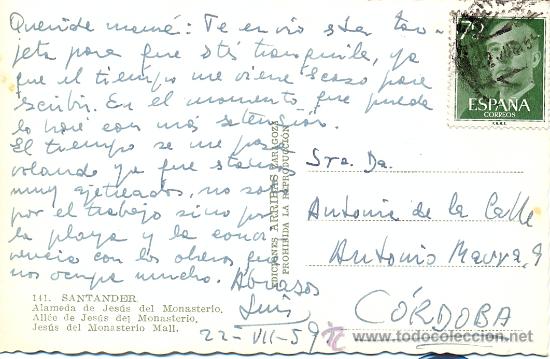 Querida mamá: Te envío esta tar-
jeta para que estés tranquila, ya
que el tiempo me viene escaso para
escribir. En el momento que pueda
lo haré con más extensión.
El tiempo se me pasa
volando ya que estamos
muy ajetreados, no solo
por el trabajo sino por
la playa y la convi-
vencia con los obreros que
nos ocupa mucho. Abrazos
Luis
22-VII-59
141. SANTANDER.
Alameda de Jesús del Monasterio.
Allée de Jesús del Monasterio.
Jesús del Monasterio Mall.
EDICIONES ARRIBAS ZARAGOZA
PROHIBIDA LA REPRODUCCIÓN
ESPAÑA
CORREOS
Sra. Da.
Antonia de la Calle
Antonio Maura, 9
CÓRDOBA
todocoleccion
www.todocoleccion.net